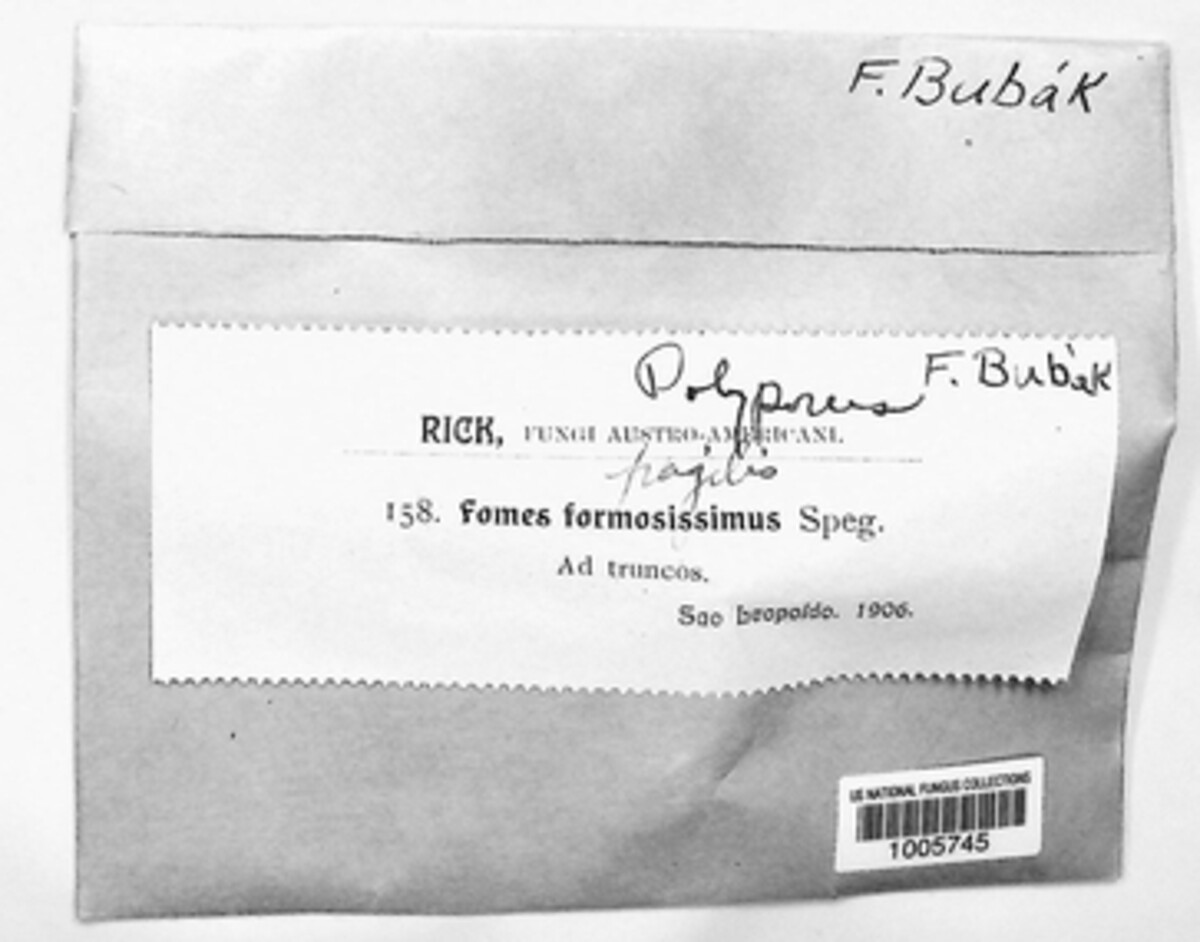 F. Bubák
F. Bubák
Polyporus
RICK, FUNGI AUSTRO-AMERICANI.
fragilis
158. Fomes formosissimus Speg.
Ad truncos.
Sao Leopoldo. 1906.
US NATIONAL FUNGUS COLLECTIONS
1005745